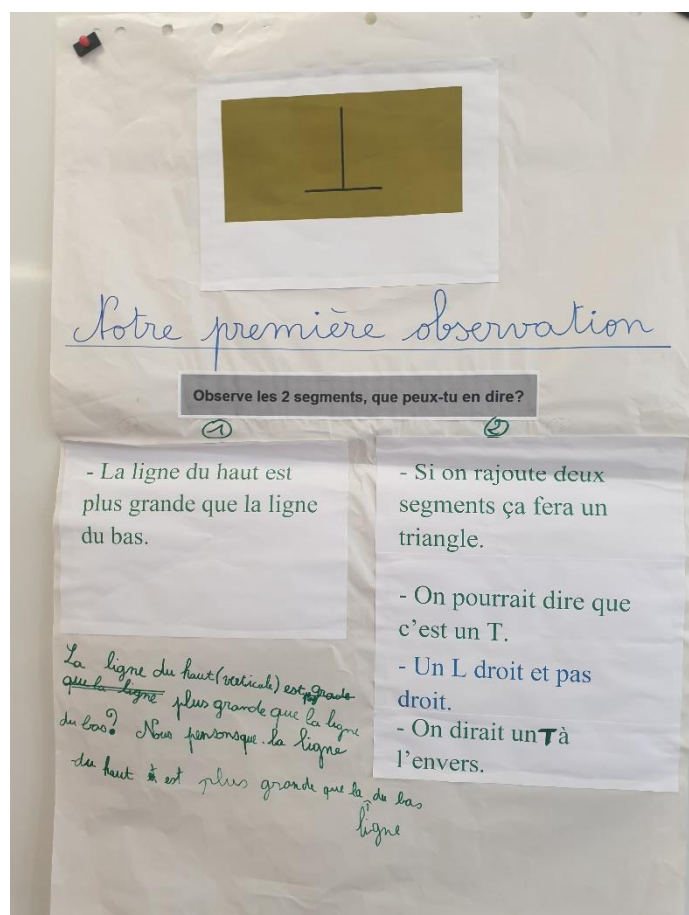 Notre première observation
Observe les 2 segments, que peux-tu en dire?
1
- La ligne du haut est
plus grande que la ligne
du bas.
La ligne du haut (verticale) est
que la ligne plus grande que la ligne
du bas? Nous pensons que la ligne
du haut est plus grande que la du bas
ligne
2
- Si on rajoute deux
segments ça fera un
triangle.
- On pourrait dire que
c'est un T.
- Un L droit et pas
droit.
- On dirait un T à
l'envers.